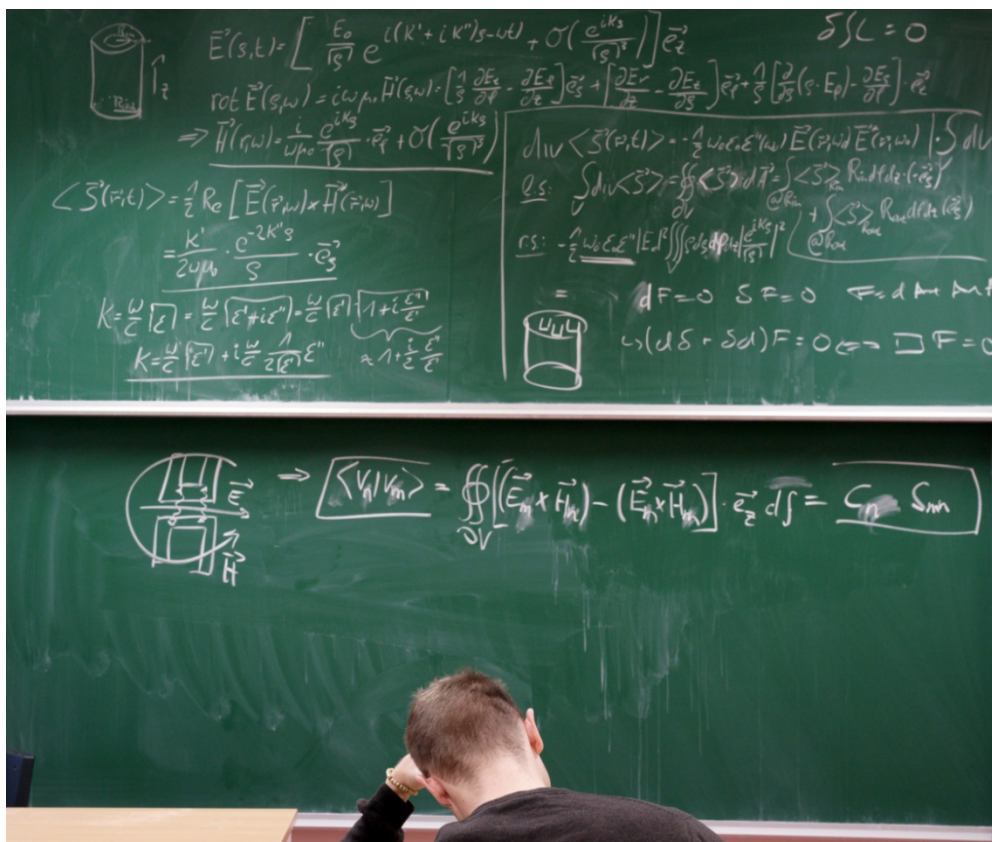 E⃗(ρ,t) = [E₀/√ρ e^{i(k'+ik'')ρ-ωt} + O(e^{ikρ}/√ρ³)] e⃗_z
δ∫L = 0
rot E⃗(ρ,ω) = iωμ₀ H⃗(ρ,ω) = [1/ρ ∂E_z/∂φ - ∂E_φ/∂z] e⃗_ρ + [∂E_r/∂z - ∂E_z/∂ρ] e⃗_φ + 1/ρ [∂/∂ρ(ρ·E_φ) - ∂E_ρ/∂φ]·e⃗_z
⇒ H⃗(r,ω) = i/ωμ₀ e^{ikρ}/√ρ · e⃗_φ + O(e^{ikρ}/√ρ³)
<S⃗(r⃗,t)> = 1/2 Re [E⃗(r⃗,ω) × H⃗(r⃗,ω)]
= k'/2ωμ₀ · e^{-2k''ρ}/ρ · e⃗_ρ
k = ω/c √ε = ω/c √(ε'+iε'') = ω/c √ε' √(1+i ε''/ε')
k = ω/c √ε' + i ω/c 1/2√ε' ε''
≈ 1 + i/2 ε''/ε'
div <S⃗(r⃗,t)> = -1/2 ω₀ε₀ε''(ω₀) E⃗(r⃗,ω₀) E⃗*(r⃗,ω₀) | ·∫ dV
l.s: ∫_V div<S⃗> = ∯_∂V <S⃗> dA⃗ = ∫_{@Rin} <S⃗>_{Rin} Rin dφdz·(-e⃗_ρ)
+ ∫_{@Rout} <S⃗>_{Rout} Rout dφdz (e⃗_ρ)
r.s: -1/2 ω₀ε₀ε'' |E₀|² ∭_V ρdρdφdz |e^{ikρ}/√ρ|²
=
dF=0 δF=0
↪(dδ+δd)F=0 ⇔ □F=0
E⃗
H⃗
⇒ <V_n|V_m> = ∯_∂V [(E⃗_m × H⃗_n) - (E⃗_n × H⃗_m)]·e⃗_z df = C_n δ_mn